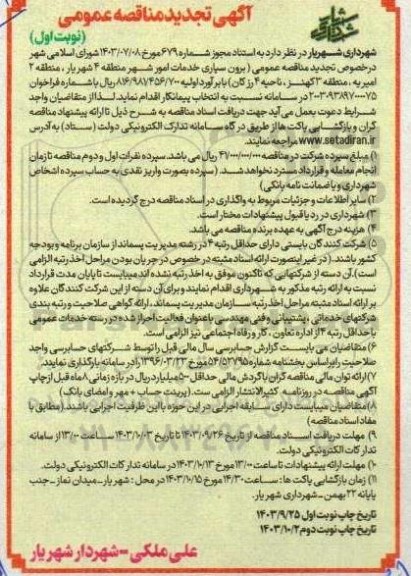 آگهی تجدید مناقصه عمومی
(نوبت اول)
شهرداری شهریار در نظر دارد به استناد مجوز شماره ۶۷۹ مورخ ۱۴۰۳/۰۷/۰۸ شورای اسلامی شهر
در خصوص تجدید مناقصه عمومی ( برون سپاری خدمات امور شهر منطقه ۴ شهریار ، منطقه ۲
امیریه ، منطقه ۳ کهنز ، ناحیه ۴ رزکان ) با برآورد اولیه ۸۱۶/۹۸۷/۴۵۶/۷۰۰ ریال با شماره فراخوان
۲۰۰۳۰۹۳۸۹۷۰۰۰۰۷۵ در سامانه نسبت به انتخاب پیمانکار اقدام نماید. لذا از متقاضیان واجد
شرایط دعوت بعمل می آید جهت دریافت اسناد مناقصه به شرح ذیل تا ارائه پیشنهاد مناقصه
گران و بازگشایی پاکت ها از طریق درگاه سامانه تدارک الکترونیکی دولت (ستاد) به آدرس
www.setadiran.ir مراجعه نمایند.
۱) مبلغ سپرده شرکت در مناقصه ۴۷/۰۰۰/۰۰۰/۰۰۰ ریال می باشد. سپرده نفرات اول و دوم مناقصه تا زمان
انجام معامله و قرارداد مسترد نخواهد شد. ( سپرده بصورت واریز نقدی به حساب سپرده اشخاص
شهرداری و یا ضمانت نامه بانکی)
۲) سایر اطلاعات و جزئیات مربوط به واگذاری در اسناد مناقصه درج گردیده است.
۳) شهرداری در رد یا قبول پیشنهادات مختار است.
۴) هزینه درج آگهی به عهده برنده مناقصه می باشد.
۵) شرکت کنندگان بایستی دارای حداقل رتبه ۴ در رشته مدیریت پسماند از سازمان برنامه و بودجه
کشور باشند. ( در غیر اینصورت ارائه اسناد مثبته در خصوص در جریان بودن مراحل اخذ رتبه الزامی
است). آن دسته از شرکتهایی که تاکنون موفق به اخذ رتبه نشده اند میبایست تا پایان مدت قرارداد
نسبت به ارائه رتبه مذکور به شهرداری اقدام نمایند و برای آن دسته از این شرکت کنندگان علاوه
بر ارائه اسناد مثبته مراحل اخذ رتبه سازمان مدیریت پسماند، ارائه گواهی صلاحیت و رتبه بندی
شرکتهای خدماتی ، پشتیبانی و فنی مهندسی با عنوان فعالیت احراز شده در رسته خدمات عمومی
با حداقل رتبه ۴ از اداره تعاون ، کار و رفاه اجتماعی نیز الزامی است.
۶) متقاضیان می بایست گزارش حسابرسی سال مالی قبل را توسط شرکتهای حسابرسی واجد
صلاحیت را براساس بخشنامه شماره ۵۴/۵۲۷۹۵ مورخ ۱۳۹۶/۰۳/۲۳ را در سامانه بارگذاری نمایند.
۷) ارائه توان مالی مناقصه گران با گردش مالی حداقل ۵۰۰ میلیارد ریال در بازه زمانی ۸ ماه قبل از چاپ
آگهی مناقصه در روزنامه کثیرالانتشار الزامی ست. (پرینت حساب + مهر و امضای بانک )
۸) متقاضیان میبایست دارای سابقه اجرایی در این حوزه با این ظرفیت اجرایی باشند. (مطابق با
مفاد اسناد مناقصه)
۹) مهلت دریافت اسناد مناقصه از تاریخ ۱۴۰۳/۰۹/۲۶ تا تاریخ ۱۴۰۳/۱۰/۰۳ ساعت ۱۳/۰۰ از سامانه
تدارکات الکترونیکی دولت.
۱۰) مهلت ارائه پیشنهادات تا ساعت ۱۳/۰۰ مورخ ۱۴۰۳/۱۰/۱۳ در سامانه تدارکات الکترونیکی دولت.
۱۱) زمان بازگشایی پاکت ها : ساعت ۱۴/۳۰ مورخ ۱۴۰۳/۱۰/۱۵ در محل : شهریار - میدان نماز - جنب
پایانه ۲۲ بهمن - شهرداری شهریار.
تاریخ چاپ نوبت اول ۱۴۰۳/۹/۲۵
تاریخ چاپ نوبت دوم ۱۴۰۳/۱۰/۲
علی ملکی - شهردار شهریار